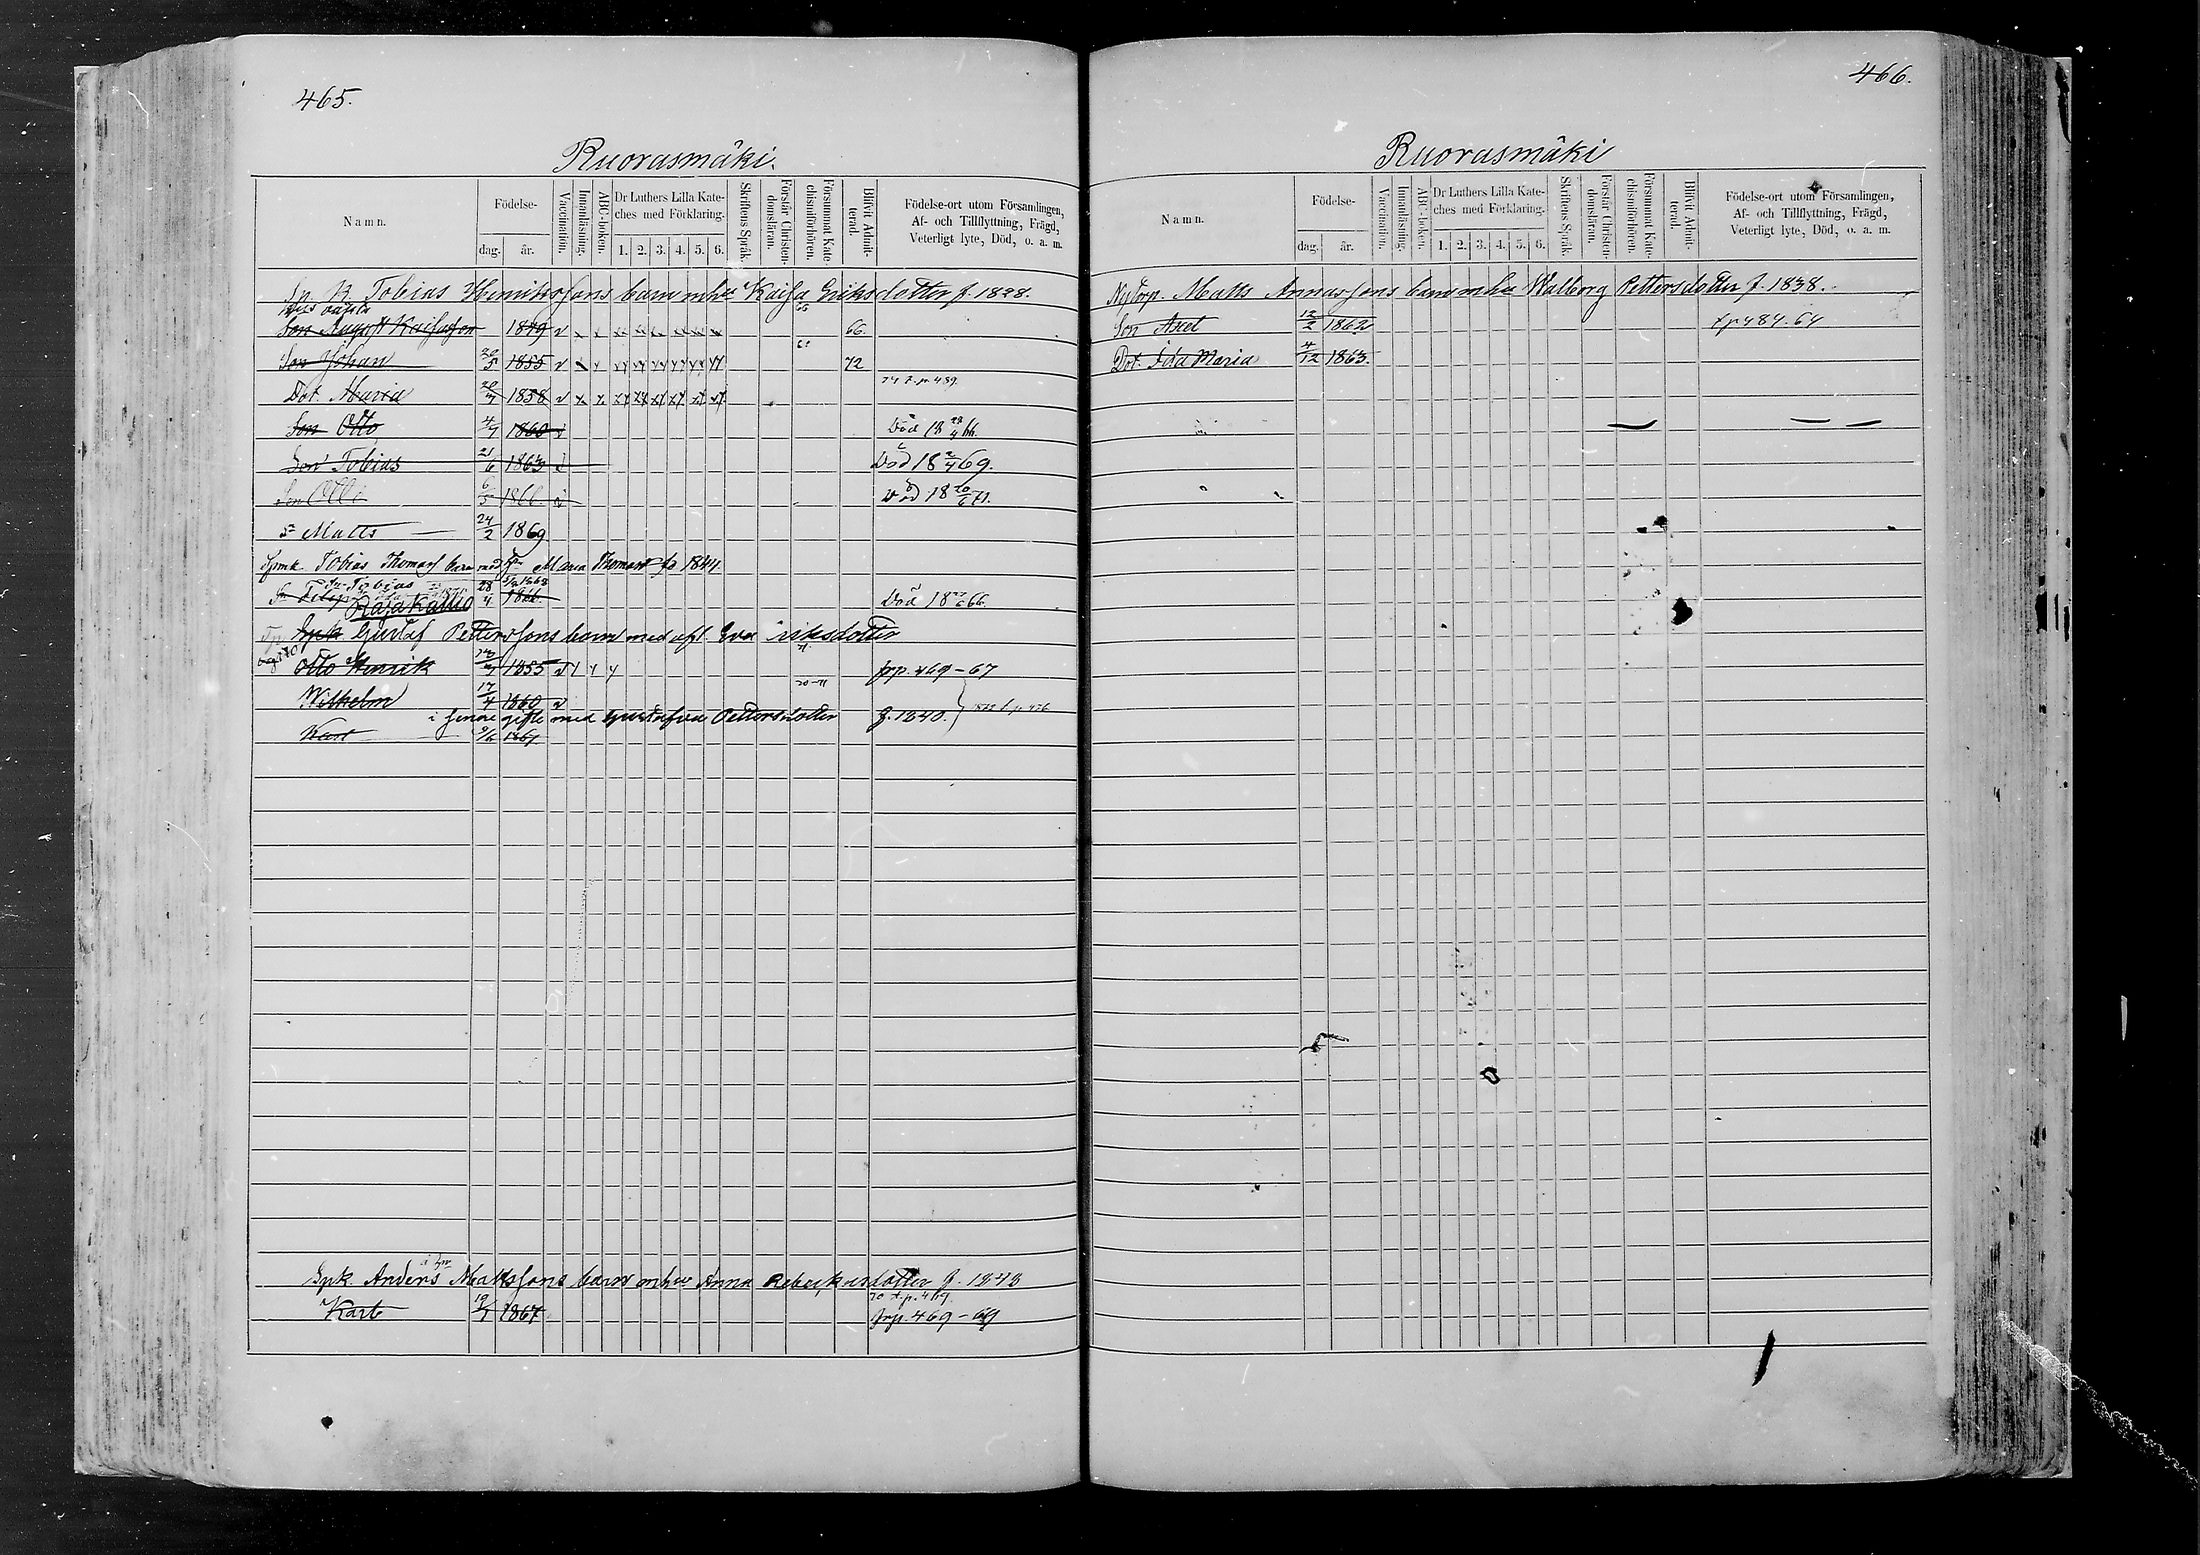 465.
Ruorasmäki.
Namn. Födelse- dag. år. Vaccination. Innanläsning. ABC-boken. Dr Luthers Lilla Kateches med Förklaring. 1. 2. 3. 4. 5. 6. Skriftens Språk. Förstår Christendomsläran. Försummat Katechismiförhören. Blifvit Admitterad. Födelse-ort utom Församlingen, Af- och Tillflyttning, Frägd, Veterligt lyte, Död, o. a. m.
Tobias Henrikssons barn m hu Kaisa Eriksdotter f. 1828.
Son August Kaisasson 1849 v 66.
Son Johan 20/5 1855 v 72
Dot. Maria 20/7 1858 v 74 t. p. 489.
Son Otto 4/7 1860 v Död 18 /4 66.
Son Tobias 21/6 1863 Död 18 2/4 69.
Son Olli 6/5 1866. v Död 18 20/6 71.
Sn Matts 24/2 1869
Tobias Thomass barn med Maria f. 1844
Sn Tobias 1868
Sn Filip 28/4 1866. Död 18 66.
Rajakallio
Spk Gustaf Petterssons barn med afl. Eva Eriksdotter
Otto Henrik 1855 v frp. 469-67
Wilhelm 17/4 1860 v 70-71
i senare gifte med Gustafva Pettersdotter f. 1840. t p. 476
Karl 9/6 1867
Spk. Anders Mattssons barn m hu Anna Rebeckasdotter f. 1843
70 t. p. 469.
Karl 19/1 1867 frp. 469-69
466.
Ruorasmäki
Namn. Födelse- dag. år. Vaccination. Innanläsning. ABC-boken. Dr Luthers Lilla Kateches med Förklaring. 1. 2. 3. 4. 5. 6. Skriftens Språk. Förstår Christendomsläran. Försummat Katechismiförhören. Blifvit Admitterad. Födelse-ort utom Församlingen, Af- och Tillflyttning, Frägd, Veterligt lyte, Död, o. a. m.
Matts Annassons barn m hu Walborg Pettersdotter f. 1838.
Son Axel 12/2 1862 t p 484. 64
Dot. Ida Maria 4/12 1863.